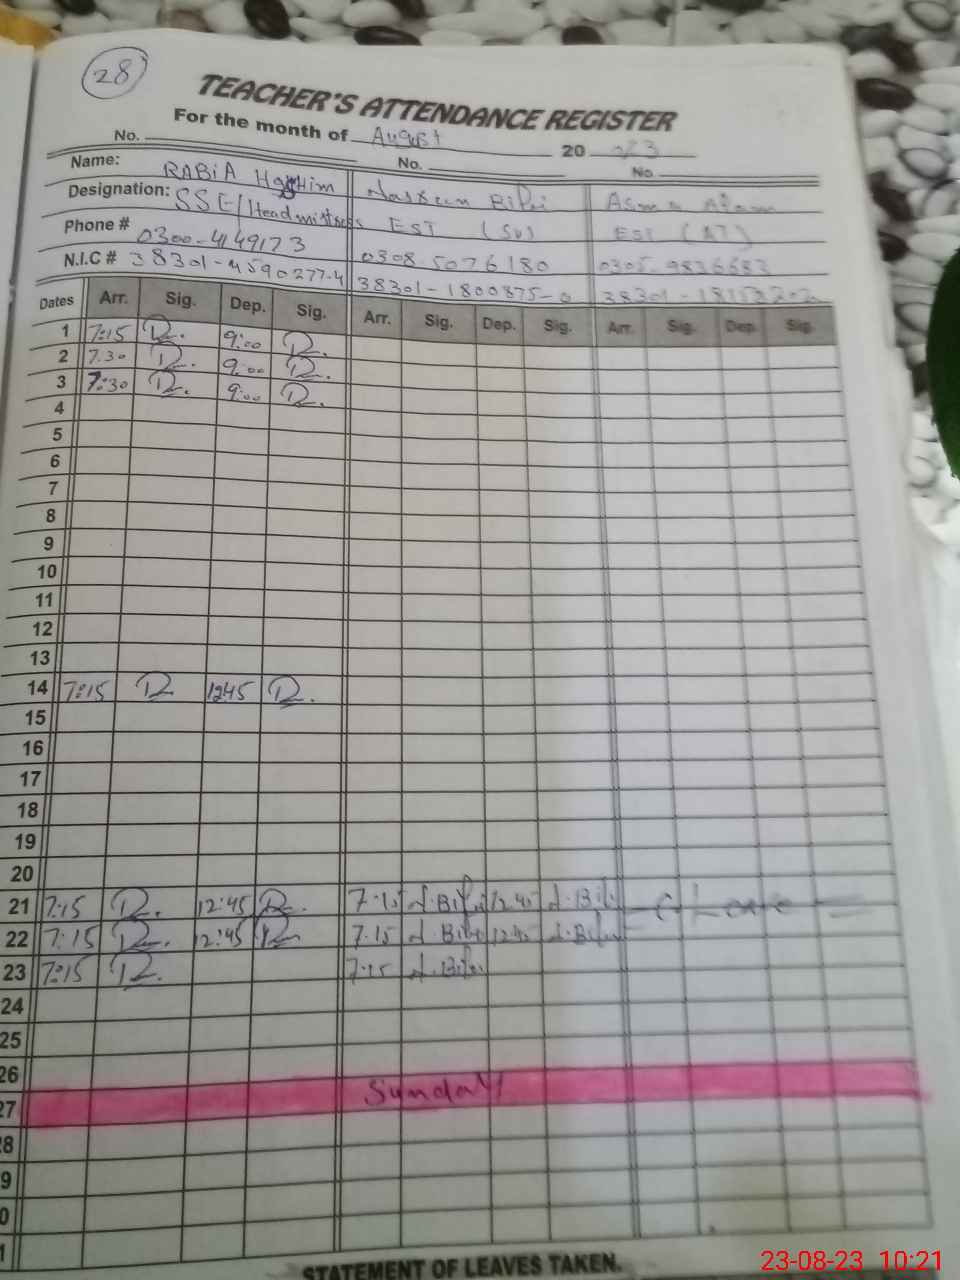 28
TEACHER'S ATTENDANCE REGISTER
For the month of August 2023
No. No. No.
Name: RABiA Hashim Nasreen Bibi Asma Alam
Designation: SSE/Headmistress EST (SV) EST (AT)
Phone # 0300-4149173 0308-5076180 0305-9836683
N.I.C # 38301-4590277-4 38301-1800875-0 38301-
Dates Arr. Sig. Dep. Sig. Arr. Sig. Dep. Sig. Arr. Sig. Dep. Sig.
1 7:15 9:00
2 7:30 9:00
3 7:30 9:00
4
5
6
7
8
9
10
11
12
13
14 7:15 1245
15
16
17
18
19
20
21 7:15 12:45 7.15 N.Bibi 12.45 N.Bibi C. Leave
22 7:15 12:45 7.15 N.Bibi 12.45 N.Bibi
23 7:15 7.15 N.Bibi
24
25
26
27 Sunday
8
9
0
1
STATEMENT OF LEAVES TAKEN.
23-08-23 10:21